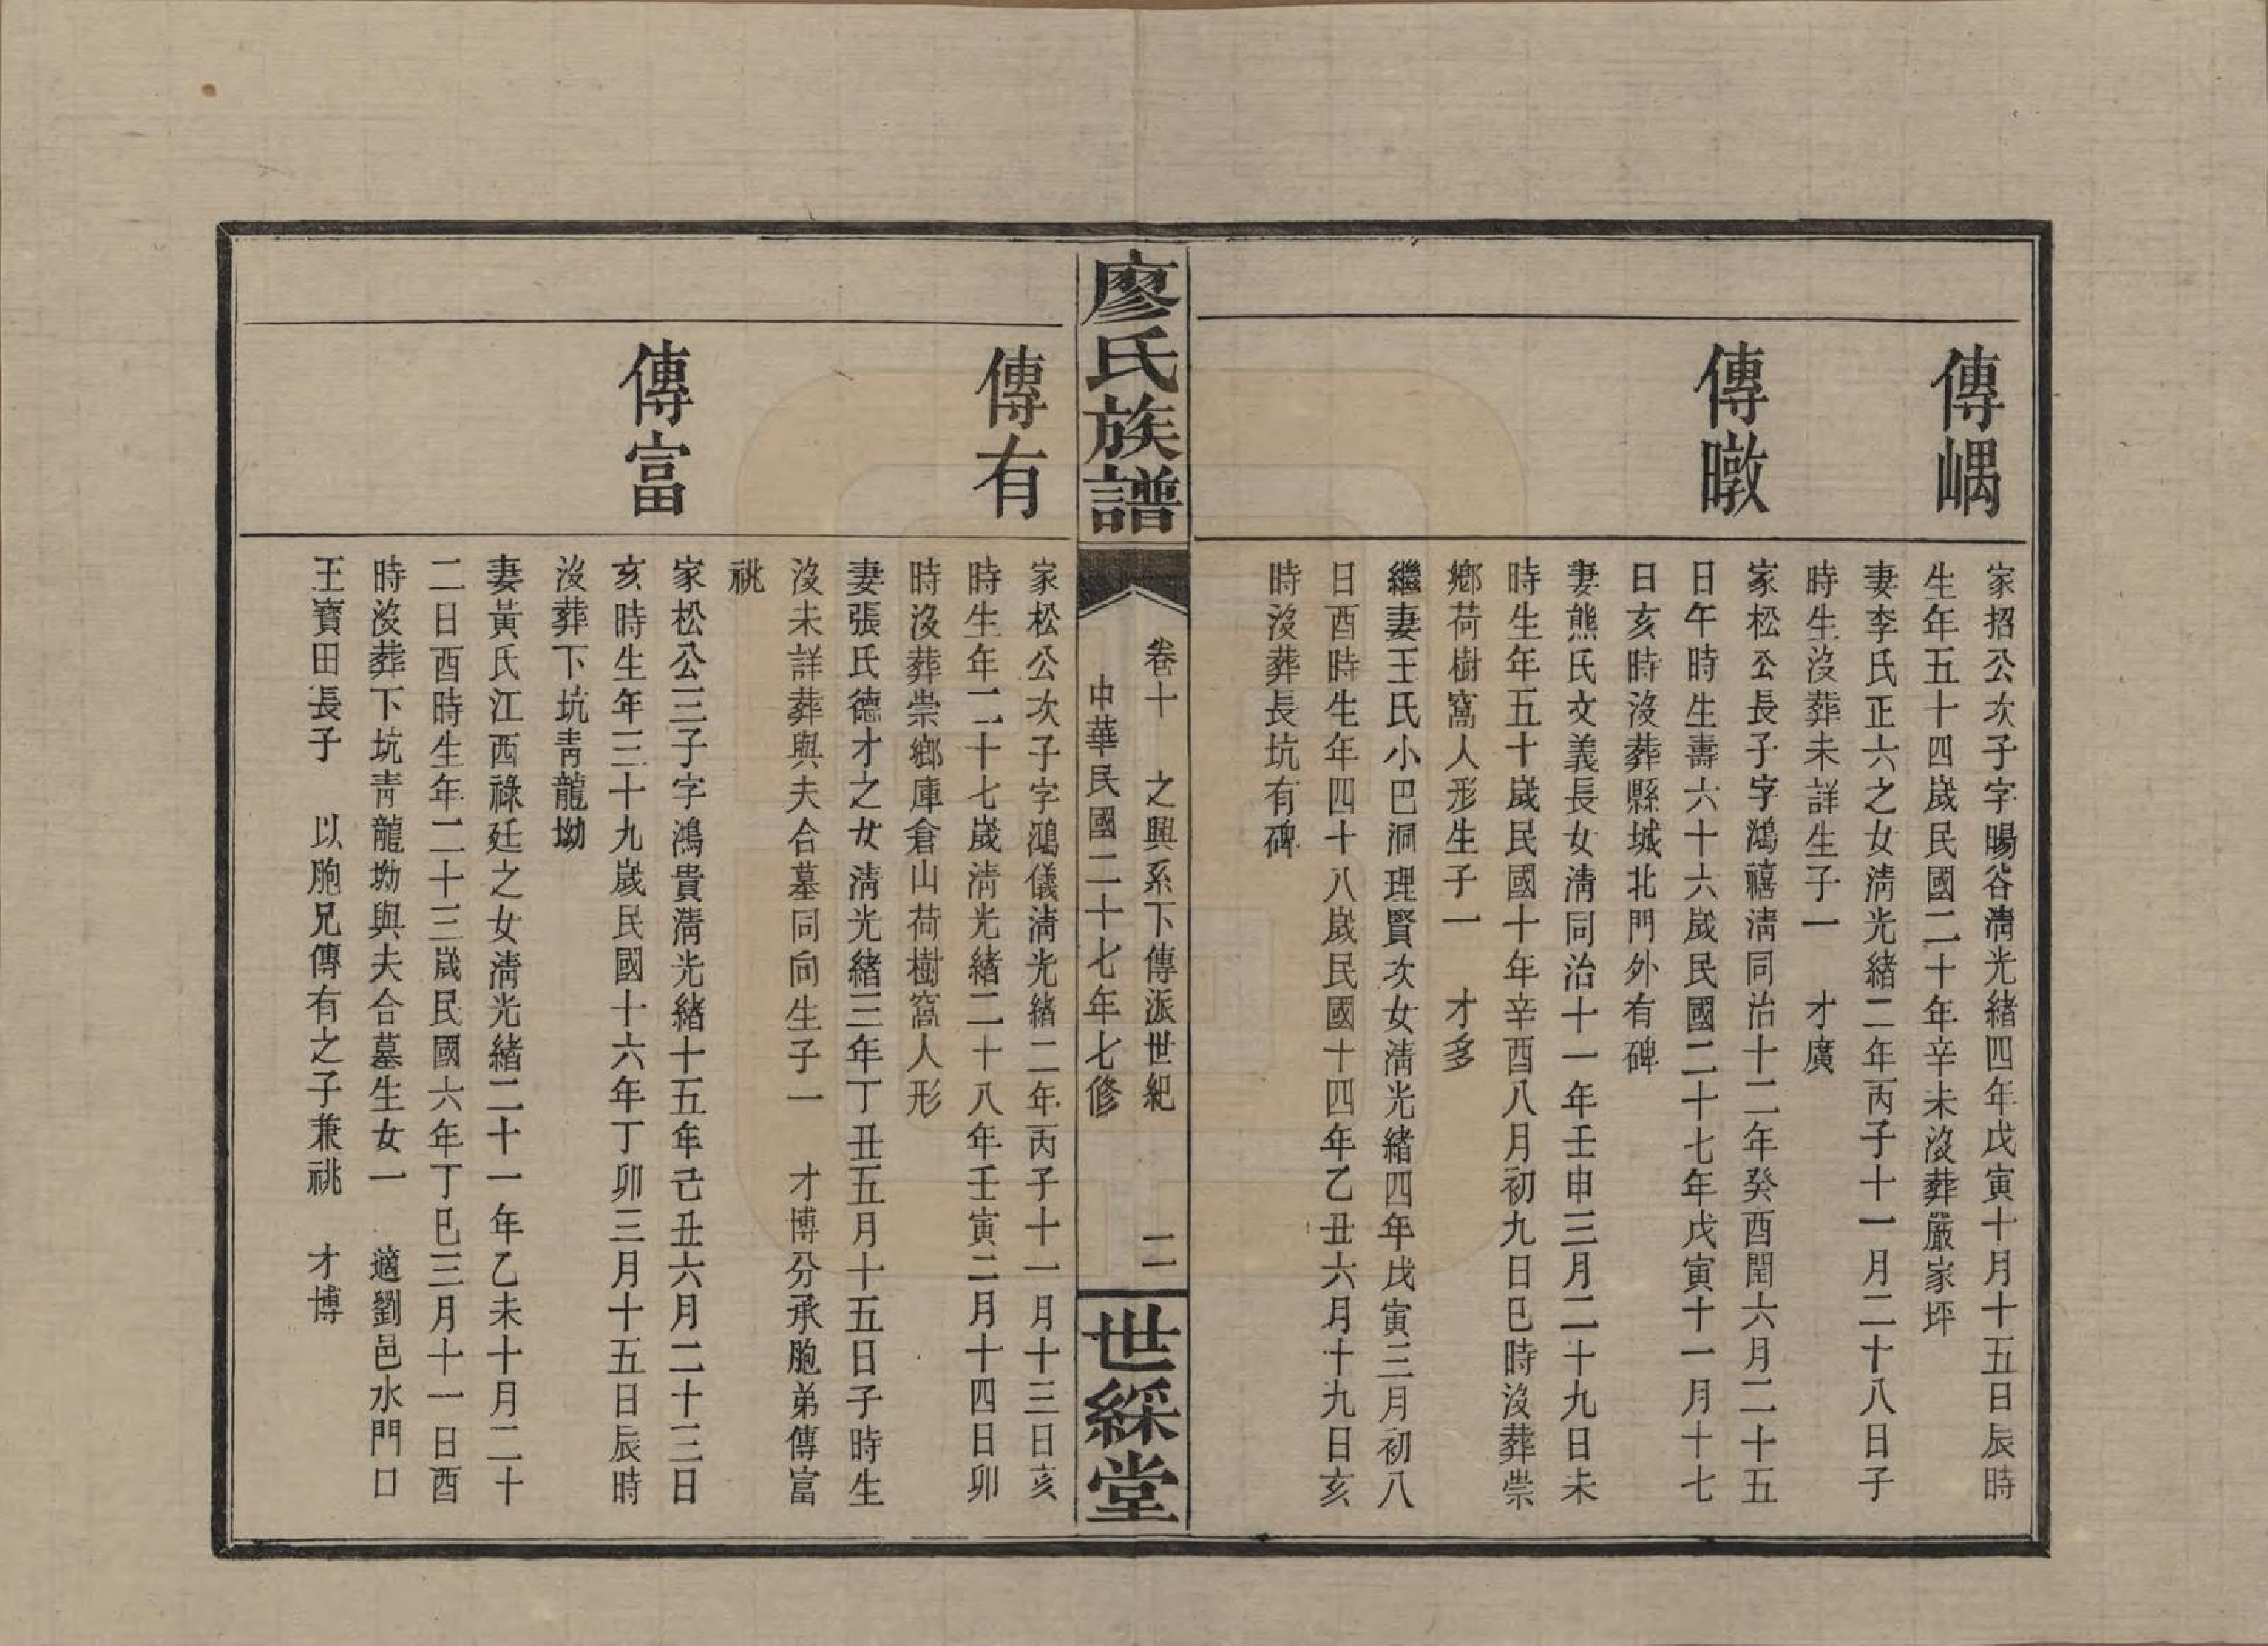 傳嵎
家招公次子字暘谷淸光緖四年戊寅十月十五日辰時
生年五十四歲民國二十年辛未沒葬嚴家坪
妻李氏正六之女淸光緖二年丙子十一月二十八日子
時生沒葬未詳生子一　才廣
傳暾
家松公長子字鴻禧淸同治十二年癸酉閏六月二十五
日午時生壽六十六歲民國二十七年戊寅十一月十七
日亥時沒葬縣城北門外有碑
妻熊氏文義長女淸同治十一年壬申三月二十九日未
時生年五十歲民國十年辛酉八月初九日巳時沒葬崇
鄕荷樹窩人形生子一　才多
繼妻王氏小巴洞理賢次女淸光緖四年戊寅三月初八
日酉時生年四十八歲民國十四年乙丑六月十九日亥
時沒葬長坑有碑
廖氏族譜
卷十　之興系下傳派世紀　二
中華民國二十七年七修
世綵堂
傳有
家松公次子字鴻儀淸光緖二年丙子十一月十三日亥
時生年二十七歲淸光緖二十八年壬寅二月十四日卯
時沒葬崇鄕庫倉山荷樹窩人形
妻張氏德才之女淸光緖三年丁丑五月十五日子時生
沒未詳葬與夫合墓同向生子一　才博分承胞弟傳富
祧
傳富
家松公三子字鴻貴淸光緖十五年己丑六月二十三日
亥時生年三十九歲民國十六年丁卯三月十五日辰時
沒葬下坑靑龍坳
妻黃氏江西祿廷之女淸光緖二十一年乙未十月二十
二日酉時生年二十三歲民國六年丁巳三月十一日酉
時沒葬下坑靑龍坳與夫合墓生女一　適劉邑水門口
王寶田長子　以胞兄傳有之子兼祧　才博